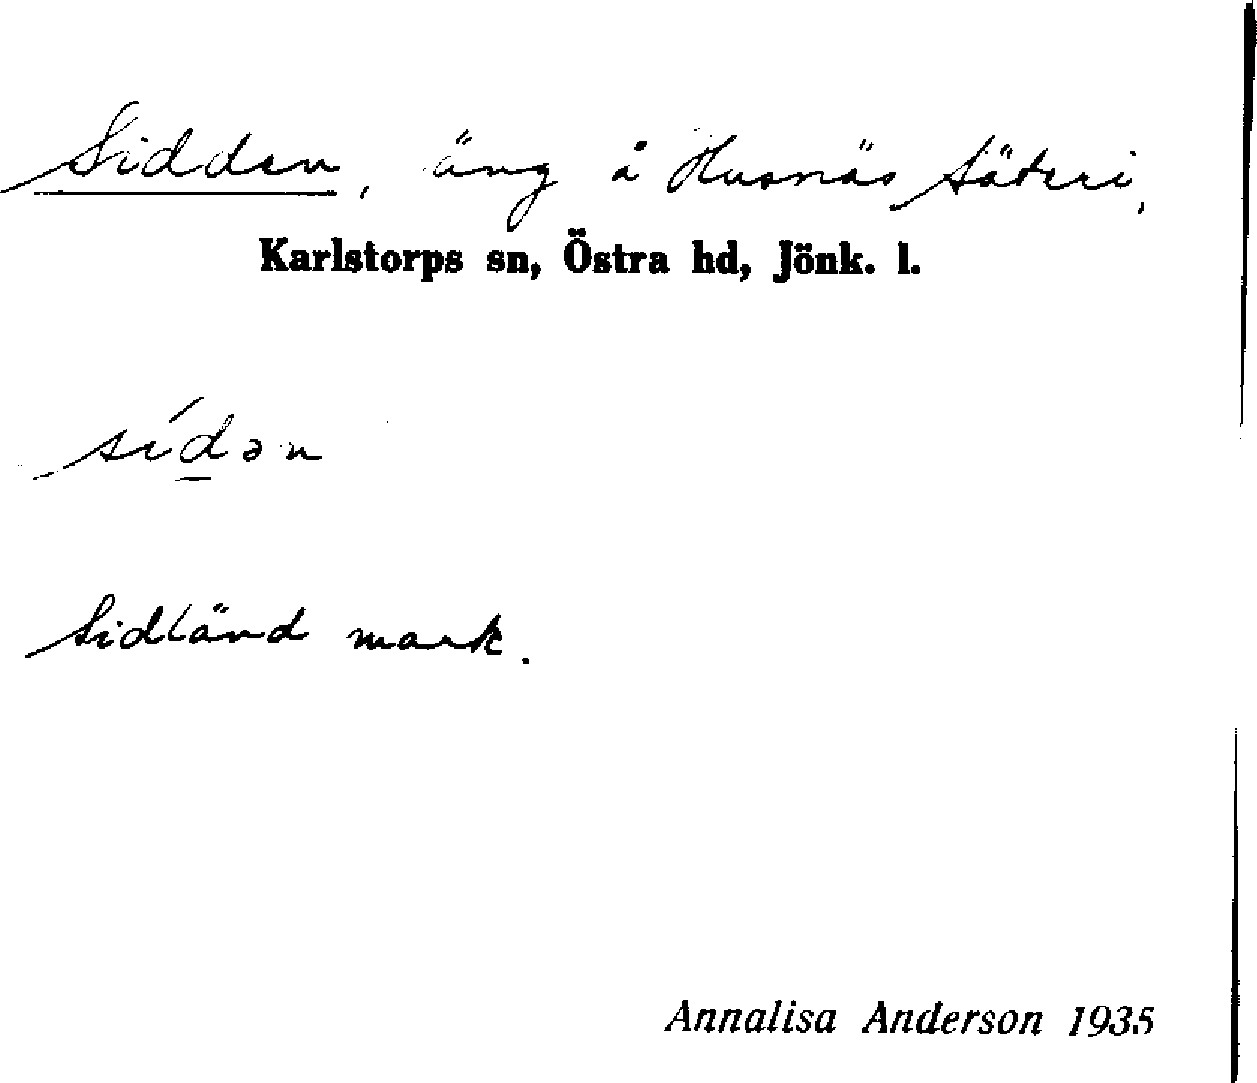 Sidden, äng å Husnäs Säteri,
Karlstorps sn, Östra hd, Jönk. l.
sídən
Sidländ mark.
Annalisa Anderson 1935